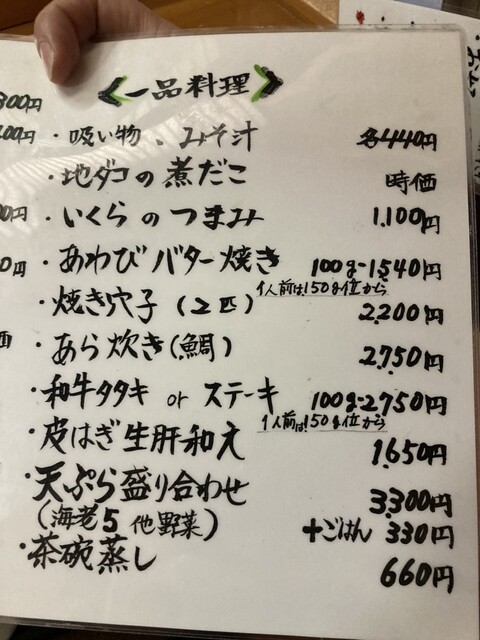 一品料理
・吸い物、みそ汁 各440円
・地ダコの煮だこ 時価
・いくらのつまみ 1,100円
・あわびバター焼き 100g-1,540円
1人前は150g位から
・焼き穴子(2匹) 2,200円
・あら炊き(鯛) 2,750円
・和牛タタキ or ステーキ 100g-2,750円
1人前は150g位から
・皮はぎ生肝和え 1,650円
・天ぷら盛り合わせ 3,300円
(海老5 他野菜) +ごはん 330円
・茶碗蒸し 660円